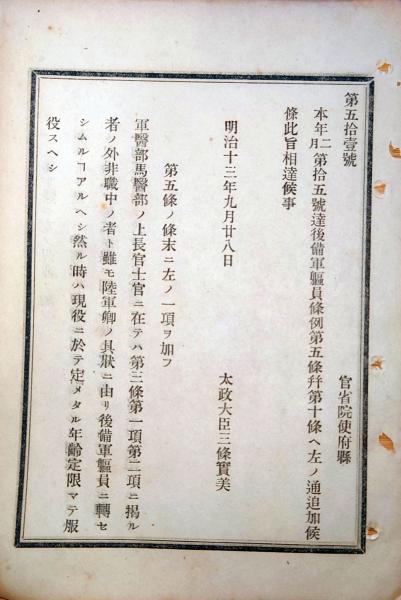 第五拾壹號
官省院使府縣
本年二月第拾五號達後備軍軀員條例第五條幷第十條ヘ左ノ通追加候
條此旨相達候事
明治十三年九月廿八日
太政大臣三條實美
第五條ノ條末ニ左ノ一項ヲ加フ
軍醫部馬醫部ノ上長官士官ニ在テハ第三條第一項第二項ニ揭ル
者ノ外非職中ノ者ト雖モ陸軍卿ノ具狀ニ由リ後備軍軀員ニ轉セ
シムルヿアルヘシ然ル時ハ現役ニ於テ定メタル年齡定限マテ服
役スヘシ